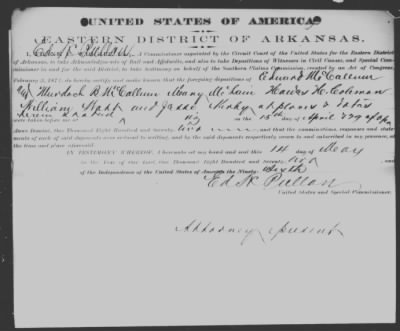 UNITED STATES OF AMERICA,
EASTERN DISTRICT OF ARKANSAS.
I, A Commissioner appointed by the Circuit Court of the United States for the Eastern District
of Arkansas, to take Acknowledgments of Bail and Affidavits, and also to take Depositions of Witnesses in Civil Causes, and Special Com-
missioner in and for the said District, to take testimony on behalf of the Southern Claims Commission, created by an Act of Congress,
February 3, 1871, do hereby certify and make known that the foregoing depositions of Edward McCallum
Murdock B. McCallum McLain H. Coleman
William and Jesse at places & dates
herein stated
were taken before me at on the day of April
Anno Domini, One Thousand Eight Hundred and seventy two and that the examinations, responses and state-
ments of each of said deponents were reduced to writing, and by the said deponents respectively sworn to and subscribed in my presence, at
the time and place aforesaid.
IN TESTIMONY WHEREOF, I hereunto set my hand and this 14 day of May
in the Year of Our Lord One Thousand Eight Hundred and seventy two
of the Independence of the United States of America the Ninety Sixth
Ed
United States and Special Commissioner.
Attorney present